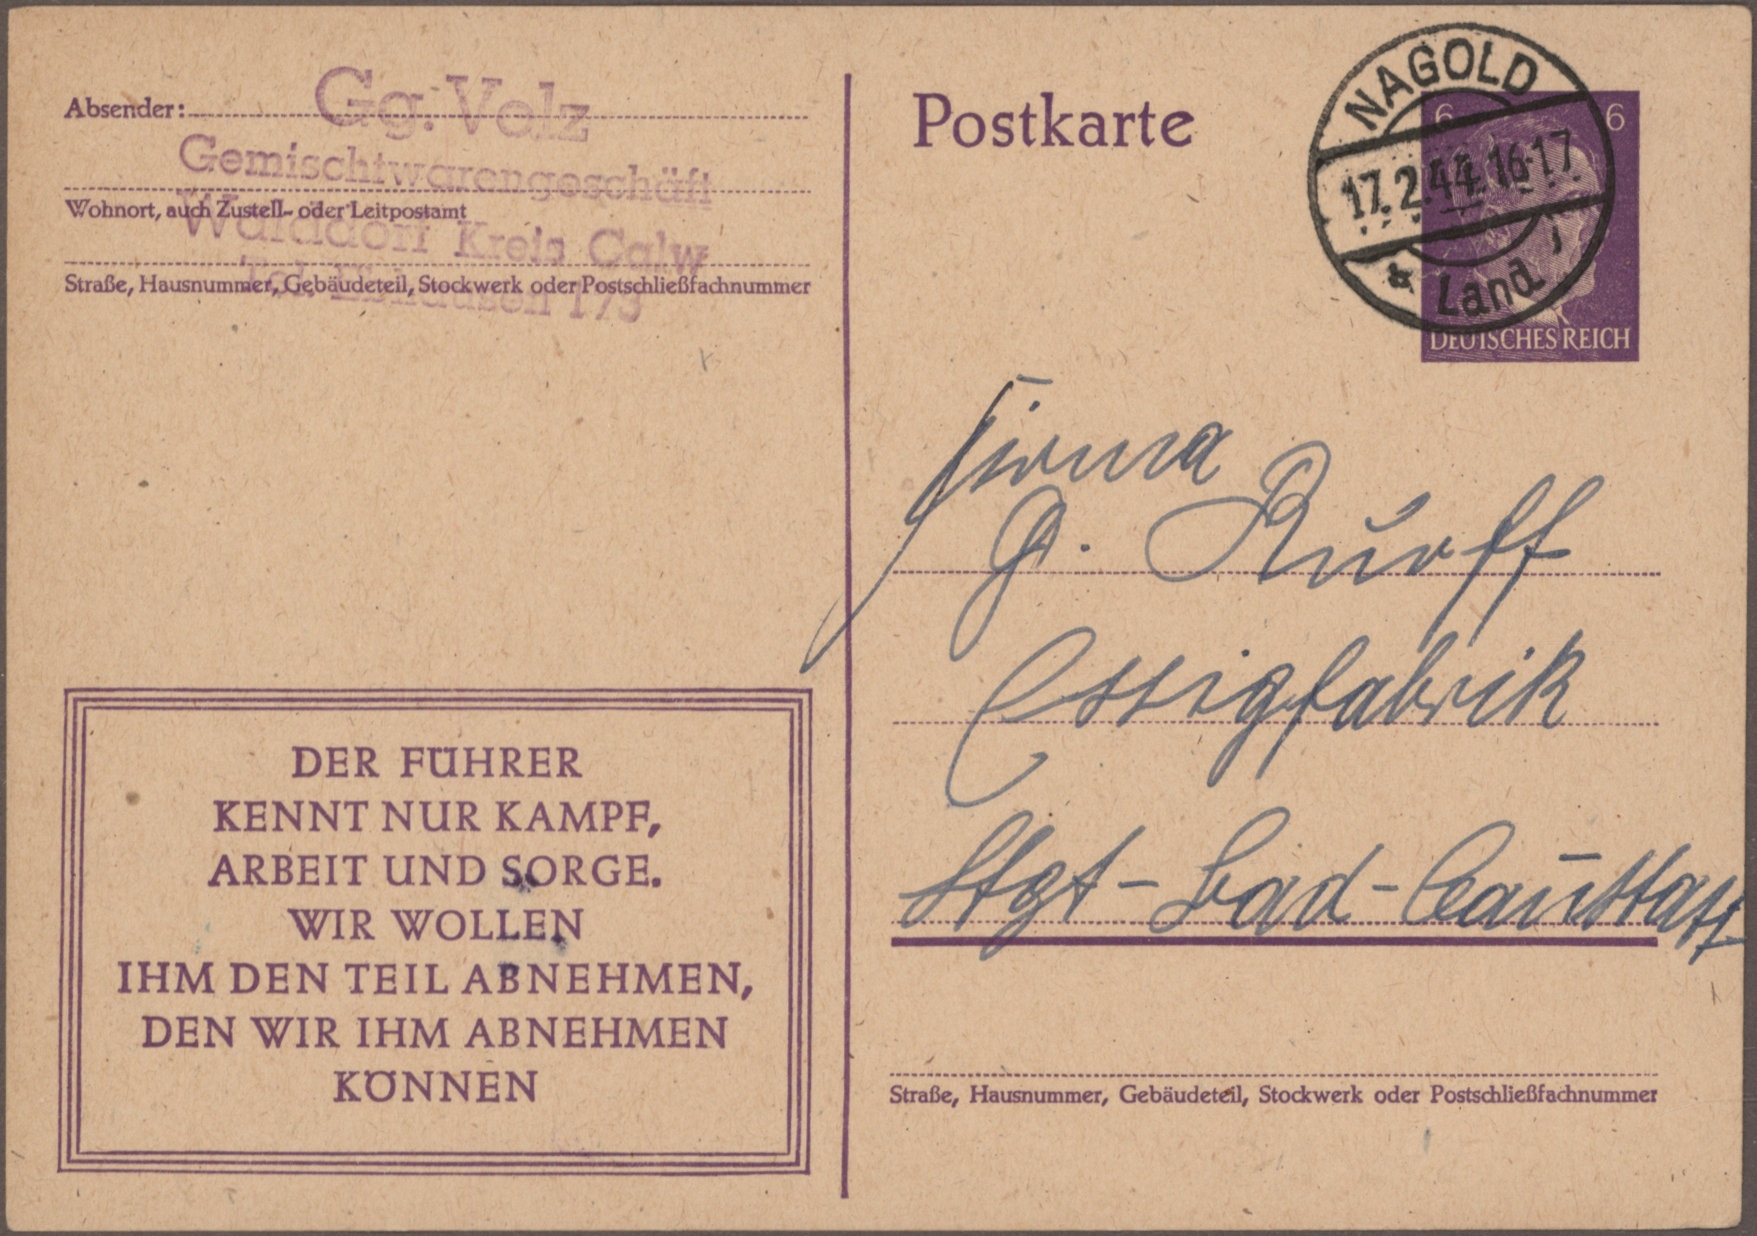 Absender:
Gg. Volz
Gemischtwarengeschäft
Wohnort, auch Zustell- oder Leitpostamt
Walddorf Kreis Calw
Straße, Hausnummer, Gebäudeteil, Stockwerk oder Postschließfachnummer
Tel. Ebhausen 175
DER FÜHRER
KENNT NUR KAMPF,
ARBEIT UND SORGE.
WIR WOLLEN
IHM DEN TEIL ABNEHMEN,
DEN WIR IHM ABNEHMEN
KÖNNEN
Postkarte
NAGOLD
17.2.44.16-17
Land
6 6
DEUTSCHES REICH
Firma
G. Rurff
Essigfabrik
Stgt-Bad-Cannstatt
Straße, Hausnummer, Gebäudeteil, Stockwerk oder Postschließfachnummer